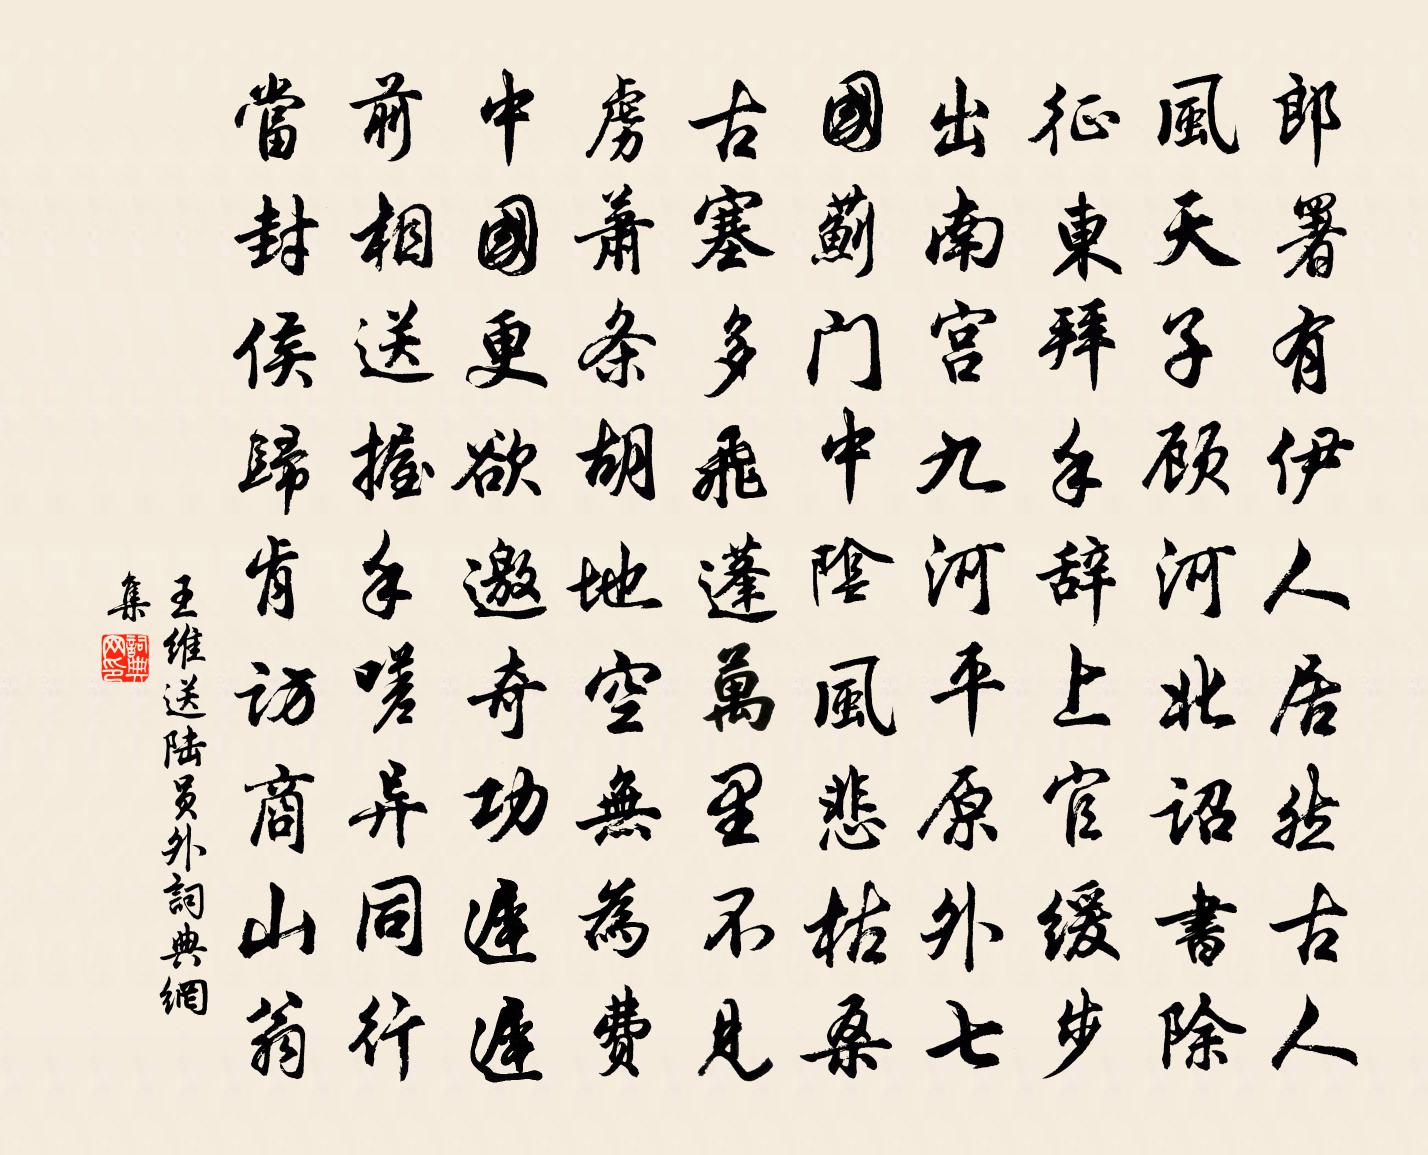 郎署有伊人居然古人
風天子顾河北詔書除
征東拜手辞上官缓步
出南宫九河平原外七
國薊门中陰風悲枯桑
古塞多飛蓬萬里不見
虏萧条胡地空無為費
中國更欲邀奇功遲遲
前相送握手嗟异同行
當封侯歸肯访商山翁
王維送陆員外詞典網
集
詞典网印